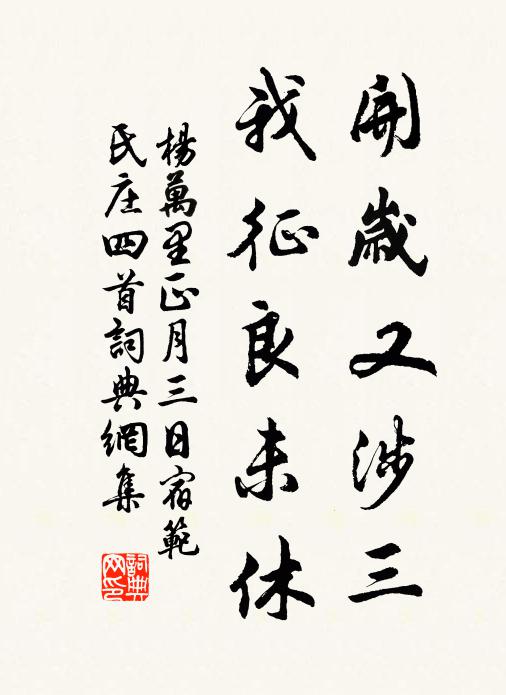 開歲又涉三
我征良未休
楊萬里正月三日宿範
氏庄四首詞典網集
詞典网印